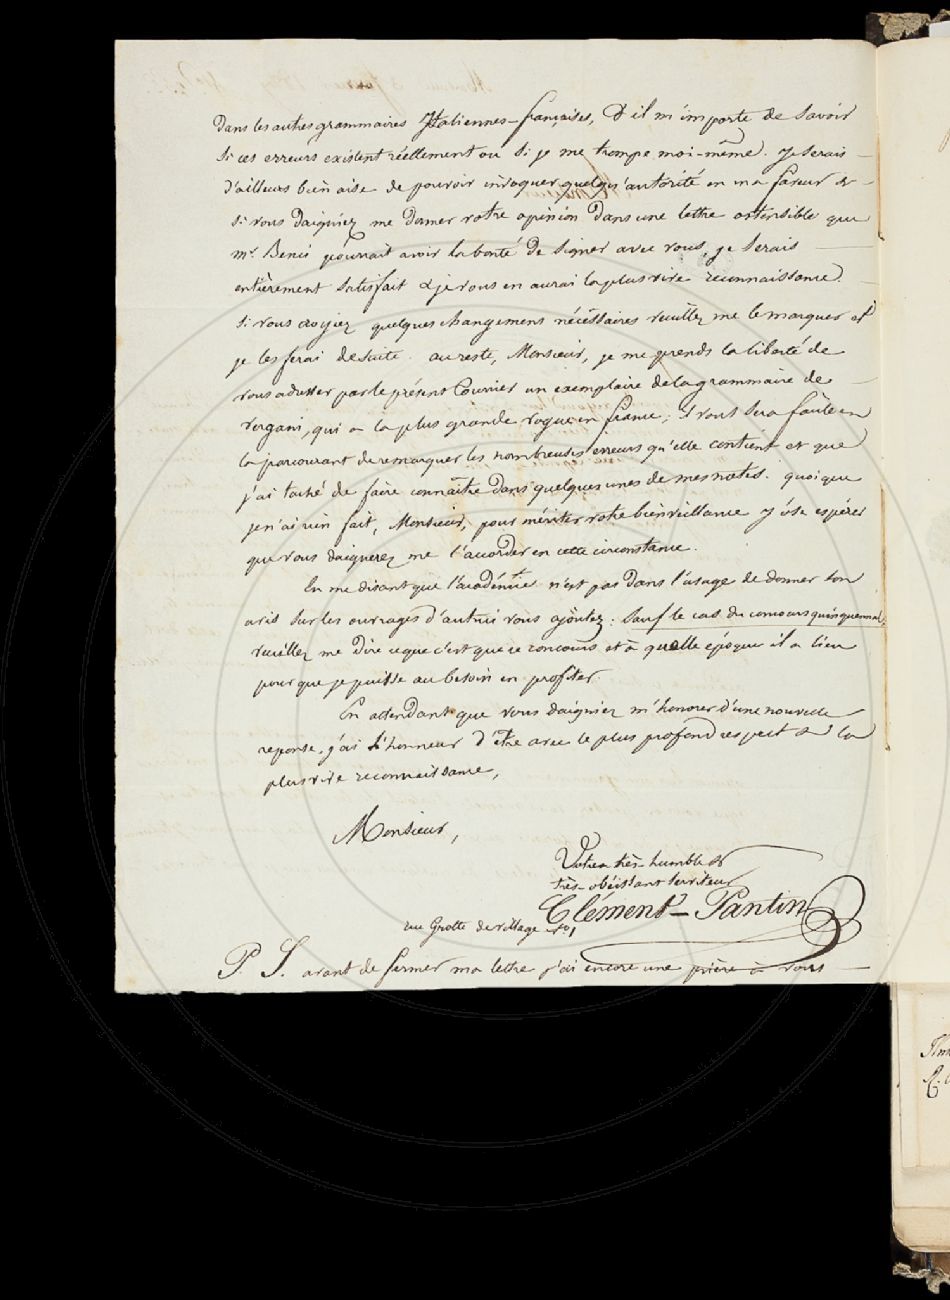 dans les autres grammaires Italiennes-françaises, & il m'importe de savoir
si ces erreurs existent réellement ou si je me trompe moi-même. je serais
d'ailleurs bien aise de pouvoir invoquer quelqu'autorité en ma faveur &
si vous daigniez me donner votre opinion dans une lettre ostensible que
mr. Benci pourrait avoir la bonté de signer avec vous, je serais
entièrement satisfait & je vous en aurai la plus vive reconnaissance.
si vous croyiez quelques changemens nécéssaires veuillez me le marquer et
je les ferai de suite. au reste, Monsieur, je me prends la liberté de
vous adresser par le présent Courrier un exemplaire de la grammaire de
vergani, qui a la plus grande vogue en france; il vous sera facile en
la parcourant de remarquer les nombreuses erreurs qu'elle contient et que
j'ai taché de faire connaître dans quelques unes de mes notes. quoique
je n'ai rien fait, Monsieur, pour mériter votre bienveillance j'ose espérer
que vous daignerez me l'accorder en cette circonstance.
En me disant que l'académie n'est pas dans l'usage de donner son
avis sur les ouvrages d'autrui vous ajoutez: sauf le cas du concours quinquennal,
veuillez me dire ce que c'est que ce concours et à quelle époque il a lieu
pour que je puisse au besoin en profiter.
En attendant que vous daigniez m'honorer d'une nouvelle
reponse, j'ai l'honneur d'être avec le plus profond respect & la
plus vive reconnaissance,
Monsieur,
Votre très-humble &
très-obéissant serviteur
Clément-Pantin
rue Grotte de village No. 1
P. S. avant de fermer ma lettre j'ai encore une prière à vous